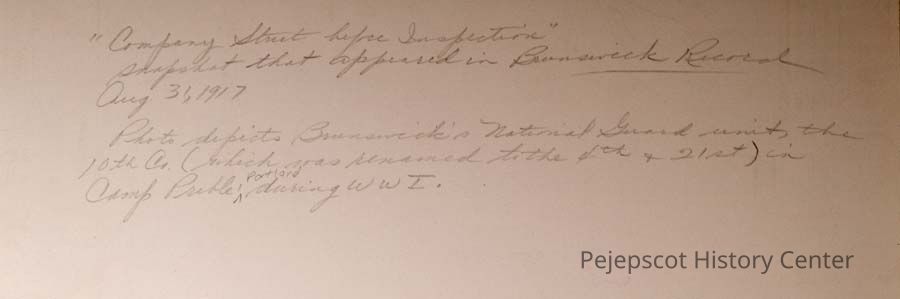 "Company Street before Inspection"
snapshot that appeared in Brunswick Record
Aug 31, 1917
Photo depicts Brunswick's National Guard unit, the
10th Co. (which was renamed to the 4th & 21st) in
Camp Preble, Portland during WWI.
Pejepscot History Center